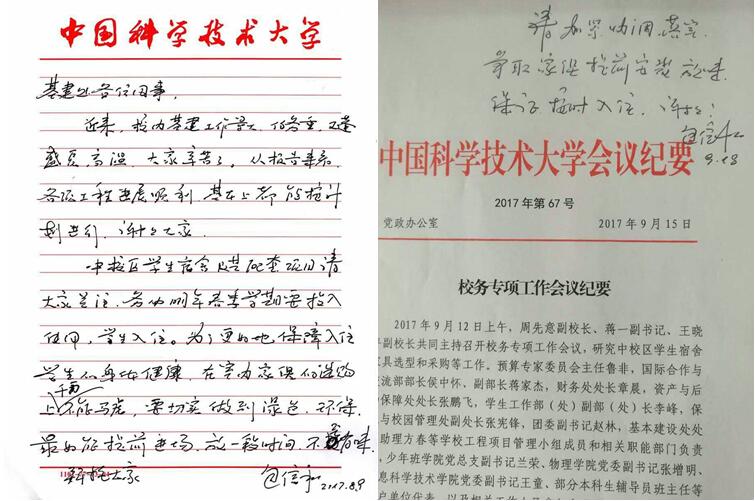 中国科学技术大学
基建处各位同事,
近来,校内基建工作量大、任务重,又逢
盛夏高温,大家辛苦了。从报告来看,
各项工程进展顺利,基本上都能按计
划进行,谢谢大家。
中校区学生宿舍及其配套项目请
大家关注,务必明年春季学期要投入
使用,学生入住。为了更好地保障入住
学生的身体健康,在室内家俱的选购
上千万不能马虎,要切实做到绿色、环保,
最好能提前进场,放一段时间,不要有味。
拜托大家 包信和 2017.8.9
请加强协调、落实
争取家俱提前安装放味,
保证按时入住。谢谢!
包信和
9.18
中国科学技术大学会议纪要
2017 年第 67 号
党政办公室 2017 年 9 月 15 日
校务专项工作会议纪要
2017 年 9 月 12 日上午,周先意副校长、蒋一副书记、王晓
副校长共同主持召开校务专项工作会议,研究中校区学生宿舍
具选型和采购等工作。预算专家委员会主任鲁非,国际合作与
流部部长侯中怀、副部长蒋家杰,财务处处长章晨,资产与后
保障处处长张鹏飞,学生工作部(处)副部(处)长李峰,保
与校园管理处副处长张宪锋,团委副书记赵林,基本建设处处
助理方春等学校工程项目管理小组成员和相关职能部门负责
,少年班学院党总支副书记兰荣、物理学院党委副书记张增明、
息科学技术学院党委副书记王童、部分本科生辅导员班主任等